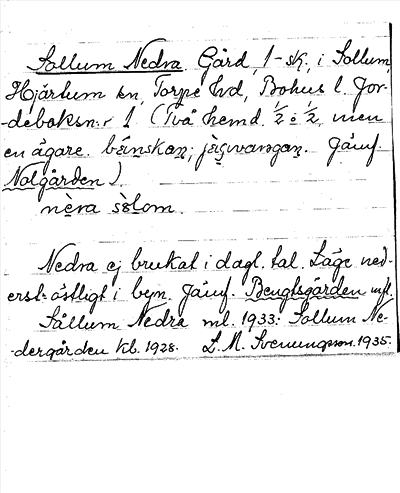 Sollum Nedra Gård, 1-sk., i Sollum,
Hjärtum sn, Torpe hd, Bohus l. Jor-
-deboksn:r 1. (Två hemd. ½ o ½, men
en ägare.
Jämf.
Nolgården).
nèra sòlom.
Nedra ej brukat i dagl. tal. Läge ned-
erst östligt i byn. Jämf. Bengtsgården m.fl.
Sållum Nedra ml. 1933: Sollum Ne-
-dergården kb. 1928. L. M. Svenungsson. 1935.